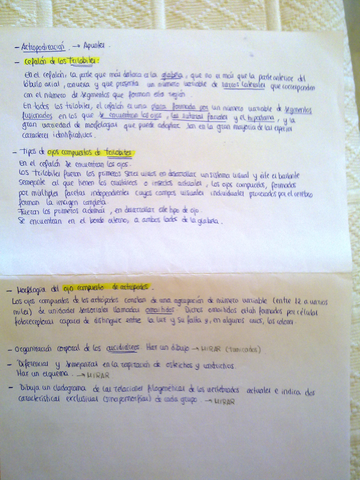 - Actinopodinación → Apuntes
- Cefalón de los Trilobites
En el cefalón, la parte que más destaca es la glabela, que no es más que la parte anterior del
lóbulo axial, convexa y que presenta un número variable de surcos laterales que corresponden
con el número de segmentos que forman esta región.
En todos los trilobites, el cefalón es una placa formada por un número variable de segmentos
fusionados en los que se encuentran los ojos, las suturas faciales y el hypostoma, y la
gran variedad de morfologías que puede adoptar. Son en la gran mayoría de las especies
caracter identificativos.
- Tipos de ojos compuestos de Trilobites
En el cefalón se encuentran los ojos.
Los Trilobites fueron los primeros seres vivos en desarrollar un sistema visual y éste es bastante
semejante al que tienen los crustáceos e insectos actuales, los ojos compuestos, formados
por múltiples facetas independientes cuyos campos visuales individuales procesados por el cerebro
forman la imagen completa.
Fueron los primeros además, en desarrollar este tipo de ojo.
Se encuentran en el borde externo, a ambos lados de la glabela.
- Morfología del ojo compuesto de artrópodos
Los ojos compuestos de los artrópodos constan de una agrupación de número variable (entre 12 a varios
miles) de unidades sensoriales llamadas omatidios. Dichos omatidios están formados por células
fotorreceptoras capaces de distinguir entre la luz y su falta y, en algunos casos, los colores
- Organización corporal de los Haz un dibujo → MIRAR (Tunicados)
- Diferencias y semejanzas en la respiración de
Haz un esquema → MIRAR
- Dibuja un cladograma de las relaciones filogenéticas de los vertebrados actuales e indica las
características exclusivas (sinapomorfías) de cada grupo → MIRAR